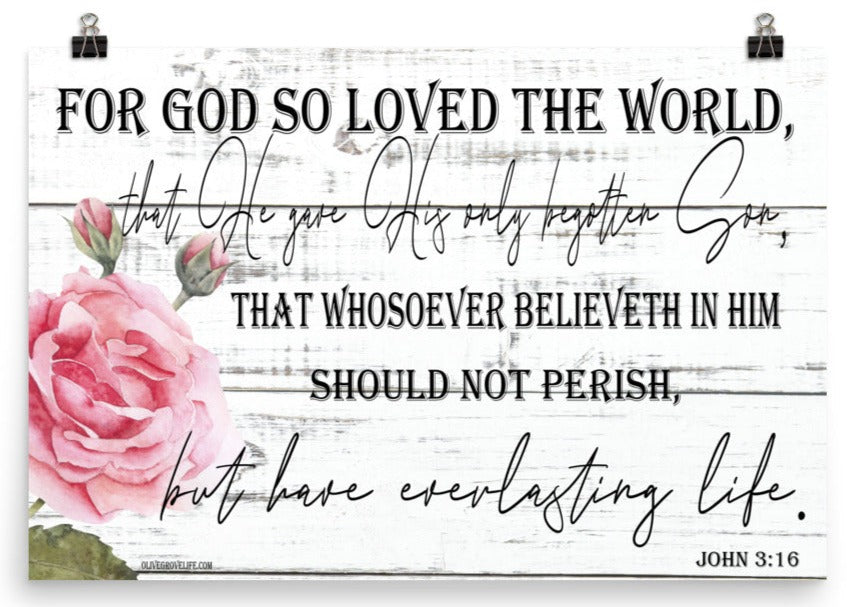 FOR GOD SO LOVED THE WORLD,
that He gave His only begotten Son,
THAT WHOSOEVER BELIEVETH IN HIM
SHOULD NOT PERISH,
but have everlasting life.
JOHN 3:16
OLIVEGROVELIFE.COM